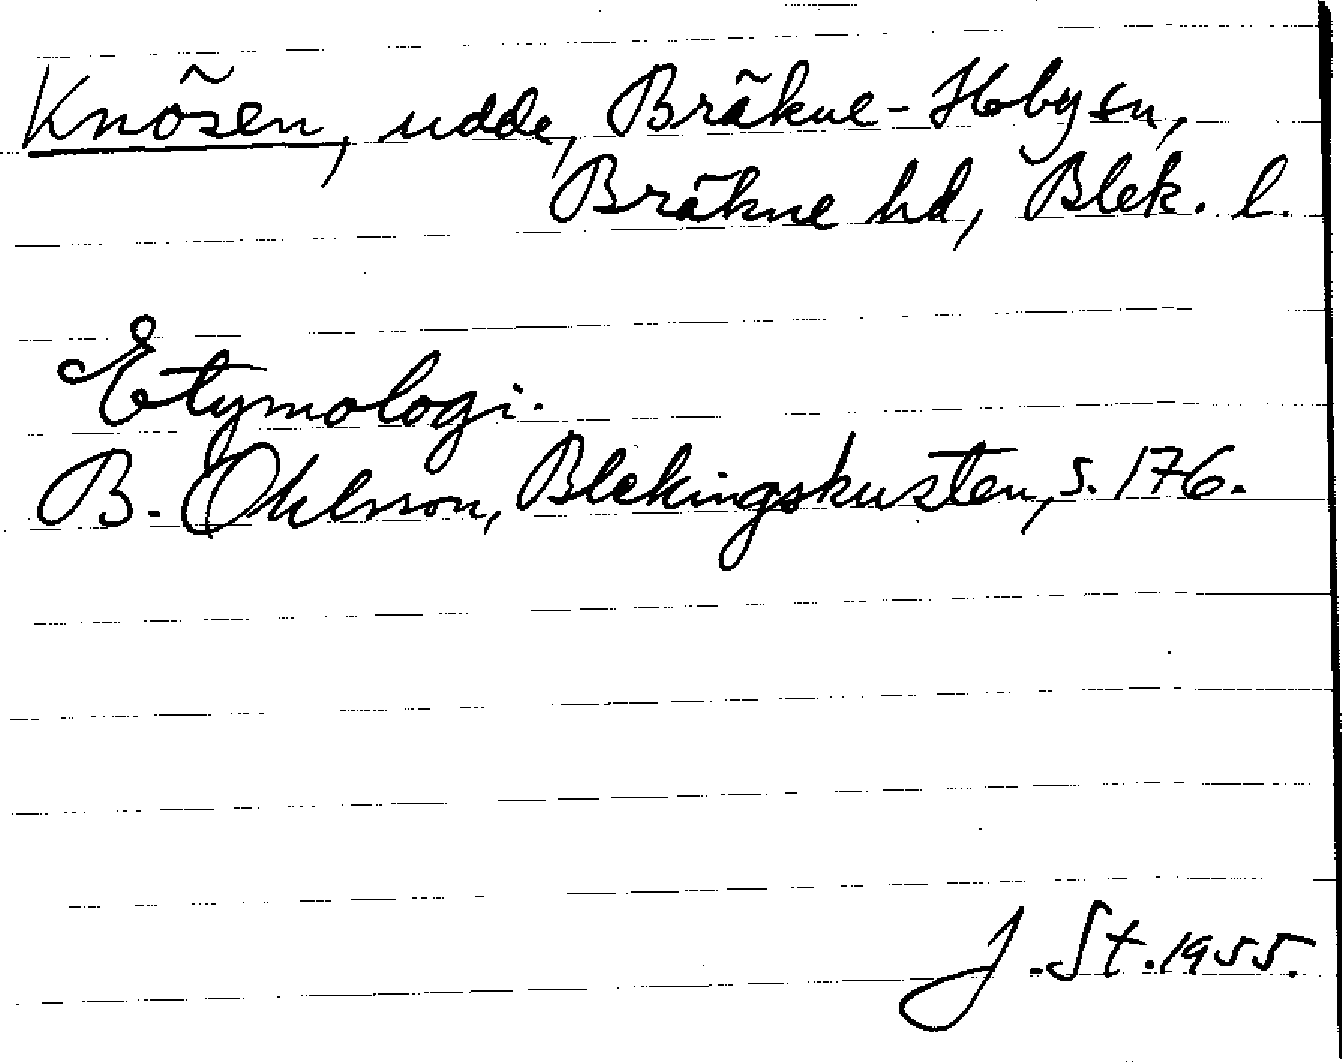 Knösen, udde, Bräkne-Hoby sn,
Bräkne hd, Blek. l.
Etymologi.
B. Ohlsson, Blekingskusten, s. 176.
J. St. 1955.